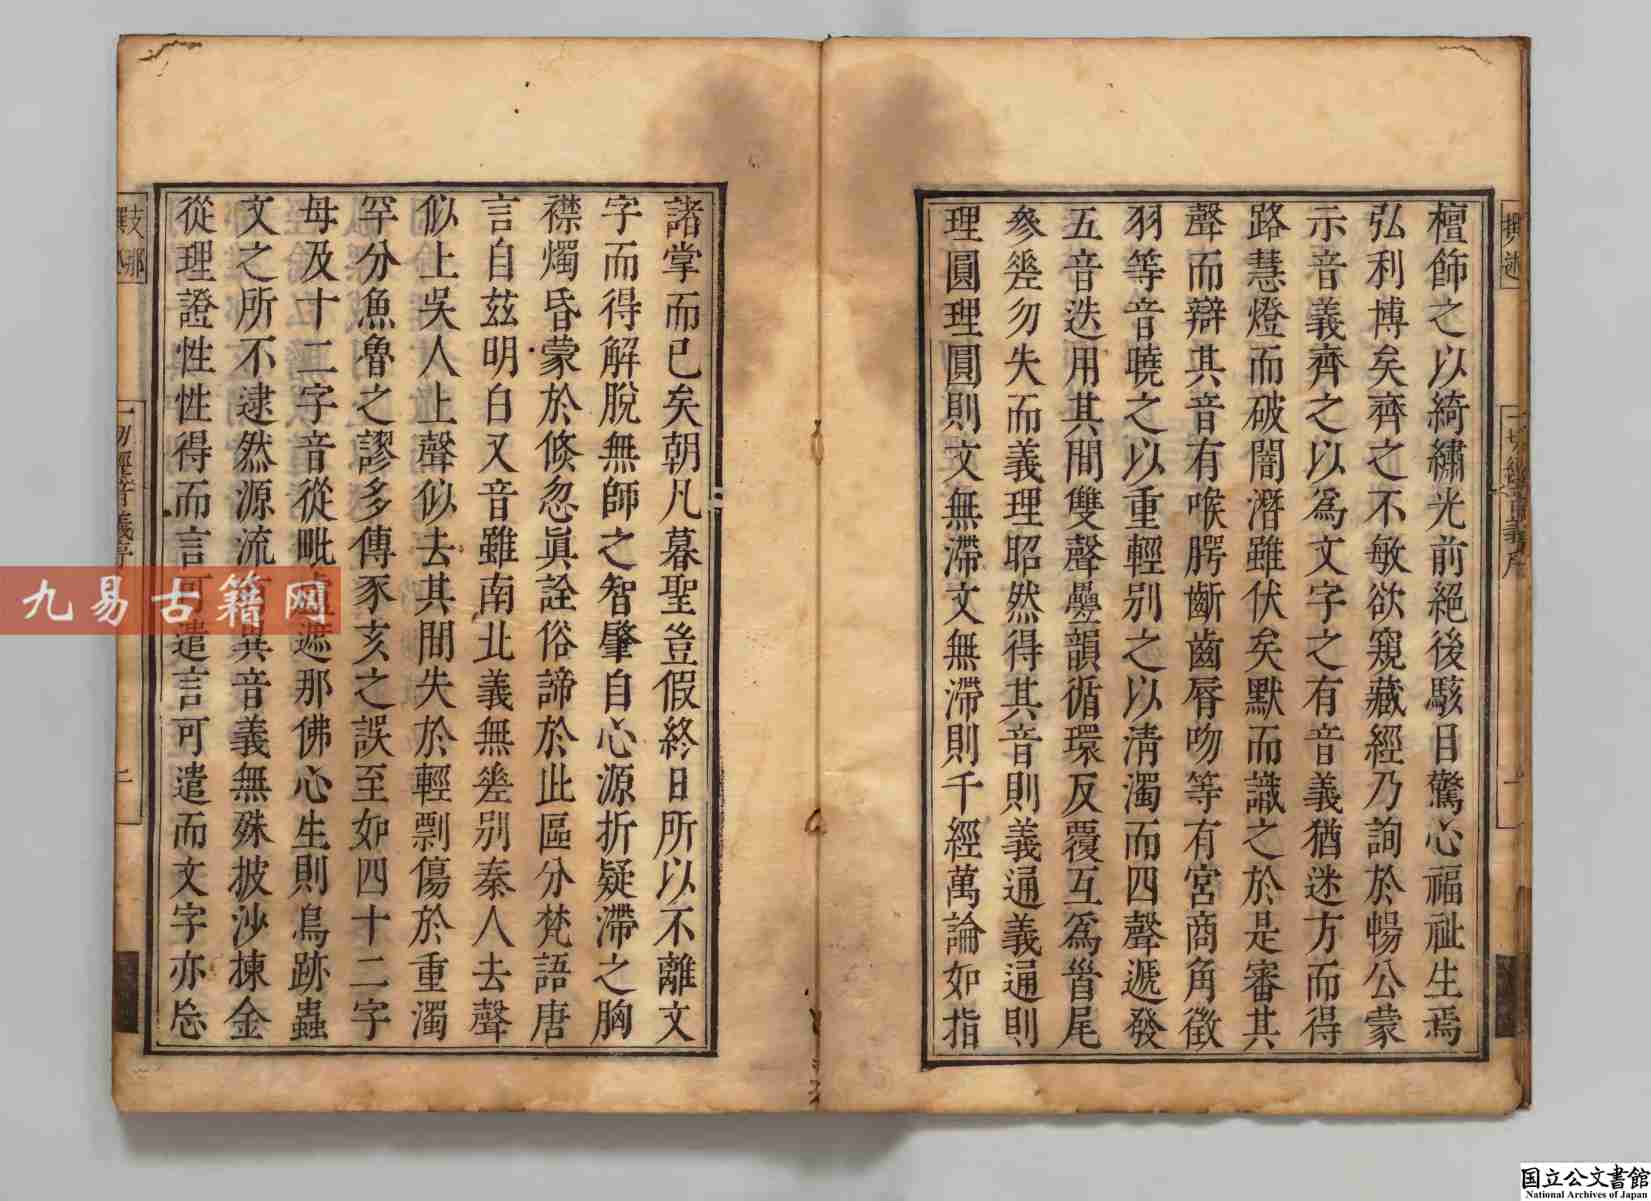 檀飾之以綺繡光前絕後駭目驚心福祉生焉
弘利博矣齊之不敏欲窺藏經乃詢於暢公蒙
示音義齊之以爲文字之有音義猶迷方而得
路慧燈而破闇潛雖伏矣默而識之於是審其
聲而辯其音有喉腭齗齒脣吻等有宮商角徵
羽等音曉之以重輕別之以淸濁而四聲遞發
五音迭用其間雙聲疊韻循環反覆互爲首尾
參差勿失而義理昭然得其音則義通義通則
理圓理圓則文無滯文無滯則千經萬論如指
諸掌而已矣朝凡暮聖豈假終日所以不離文
字而得解脫無師之智肇自心源折疑滯之胸
襟燭昏蒙於倏忽眞詮俗諦於此區分梵語唐
言自茲明白又音雖南北義無差別秦人去聲
似上吳人上聲似去其間失於輕剽傷於重濁
罕分魚魯之謬多傳豕亥之誤至如四十二字
母及十二字音從毗盧遮那佛心生則鳥跡蟲
文之所不逮然源流有異音義無殊披沙揀金
從理證性性得而言可遣言可遣而文字亦忘
撰述
一切經音義序
一切經音義序
二
支那
撰述
九易古籍网
国立公文書館
National Archives of Japan